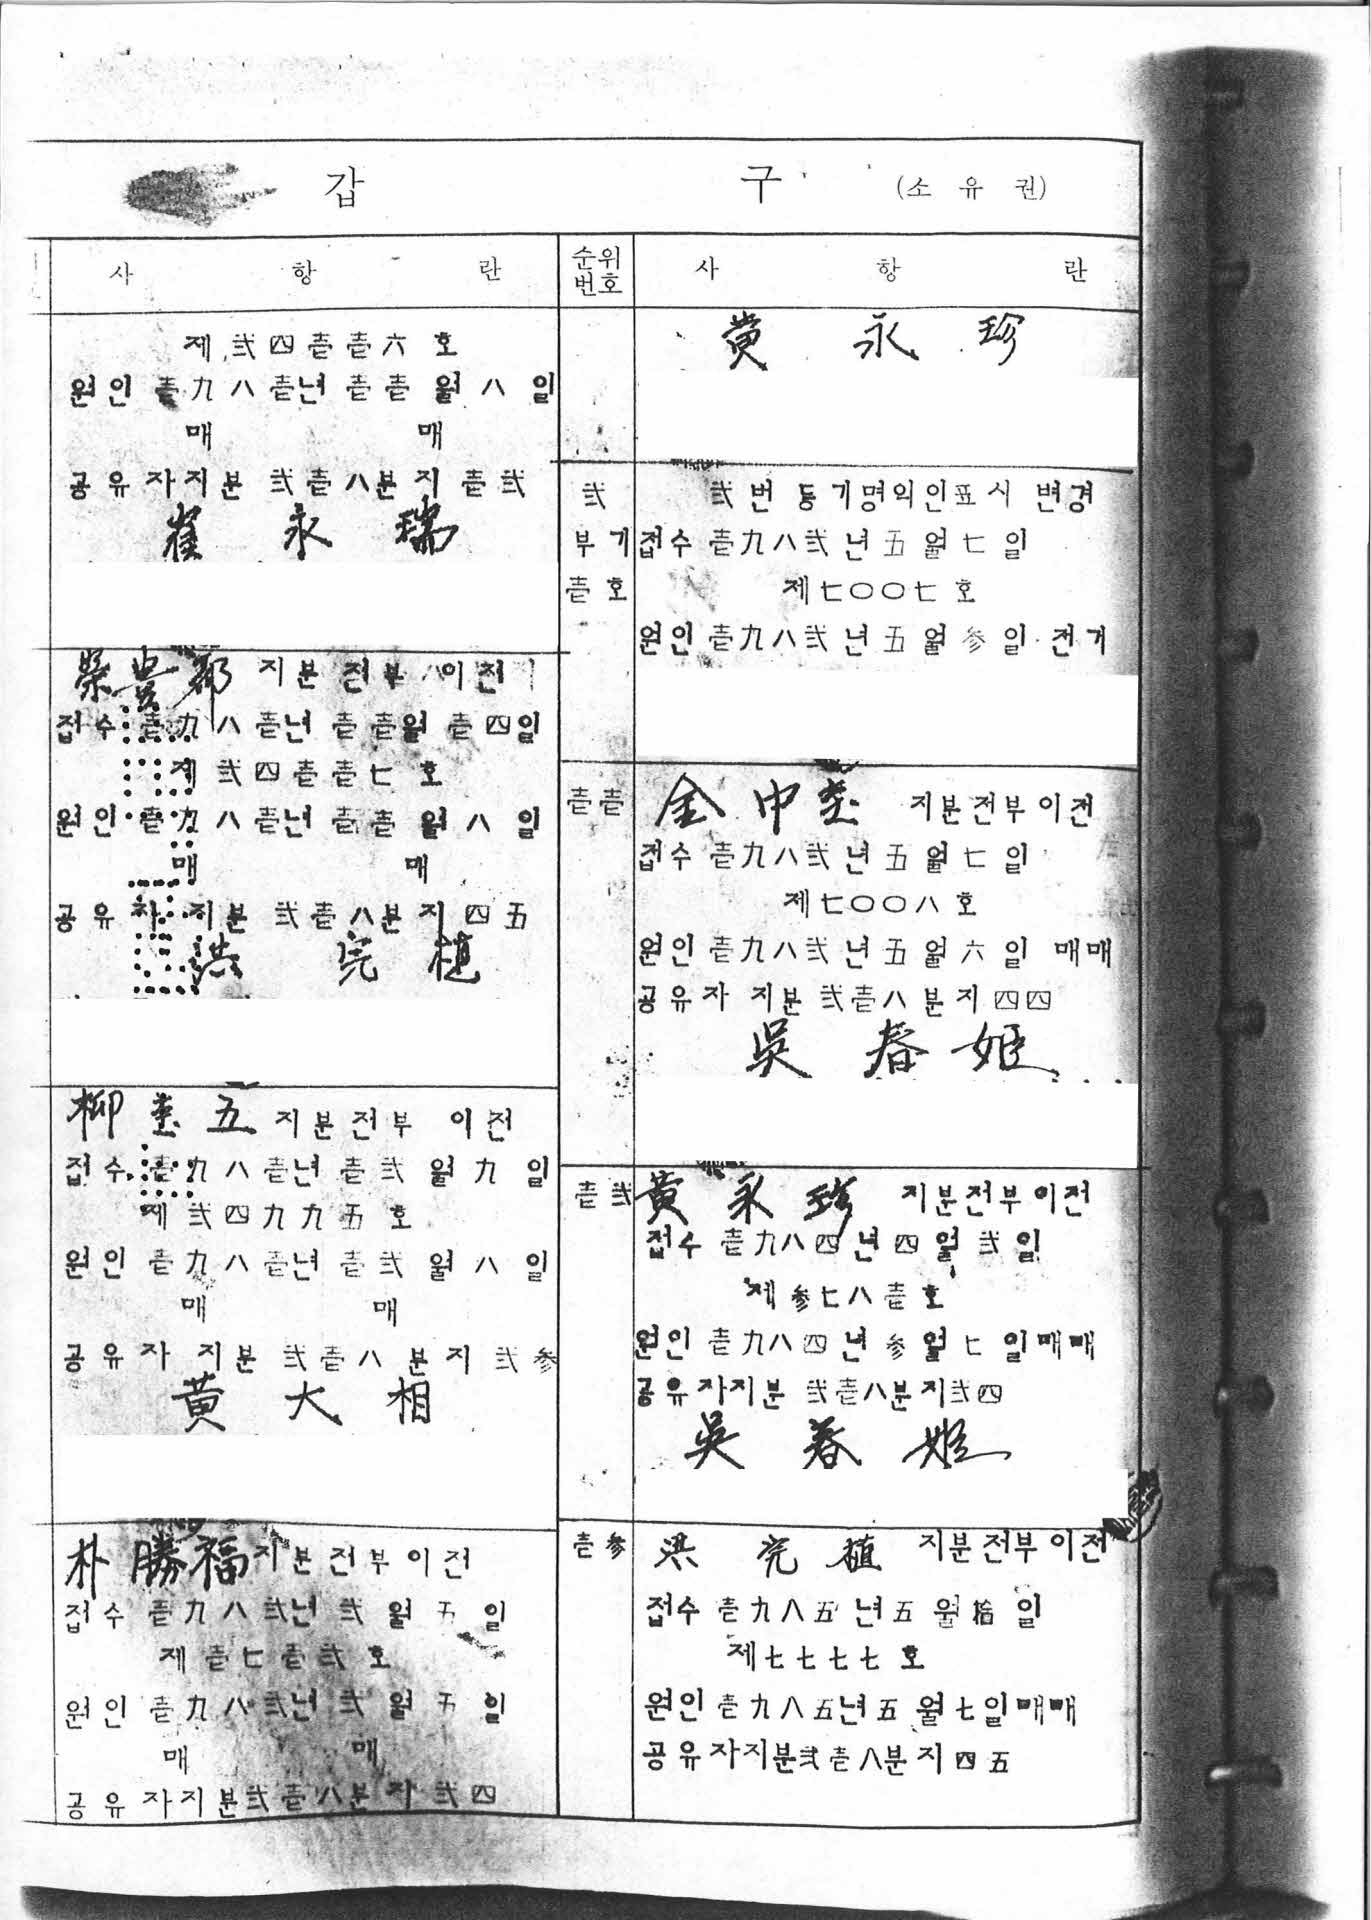 갑 구 (소 유 권)
사 항 란
제 弐 四 壱 壱 六 호
원인 壱 九 八 壱 년 壱 壱 월 八 일
매 매
공 유 자 지 분 弐 壱 八 분 지 壱 弐
崔 永 瑞
지 분 전 부 이 전
접 수 壱 九 八 壱 년 壱 壱 월 壱 四 일
제 弐 四 壱 壱 七 호
원 인 壱 九 八 壱 년 壱 壱 월 八 일
매 매
공 유 자 지 분 弐 壱 八 분 지 四 五
洪 完 植
柳 五 지 분 전 부 이 전
접 수 壱 九 八 壱 년 壱 弐 월 九 일
제 弐 四 九 九 五 호
원 인 壱 九 八 壱 년 壱 弐 월 八 일
매 매
공 유 자 지 분 弐 壱 八 분 지 弐 参
黃 大 相
朴 勝 福 지 분 전 부 이 전
접 수 壱 九 八 弐 년 弐 월 五 일
제 壱 七 壱 弐 호
원 인 壱 九 八 弐 년 弐 월 五 일
매 매
공 유 자 지 분 弐 壱 八 분 지 弐 四
순위번호
사 항 란
黃 永 珍
弐 부기 壱호
弐 번 등 기 명 의 인 표 시 변 경
접수 壱 九 八 弐 년 五 월 七 일
제 七 〇 〇 七 호
원인 壱 九 八 弐 년 五 월 参 일 전 거
壱壱
金 中 지 분 전 부 이 전
접수 壱 九 八 弐 년 五 월 七 일
제 七 〇 〇 八 호
원인 壱 九 八 弐 년 五 월 六 일 매매
공 유 자 지 분 弐 壱 八 분 지 四 四
吳 春 姬
壱弐
黃 永 珍 지 분 전 부 이 전
접수 壱 九 八 四 년 四 월 弐 일
제 参 七 八 壱 호
원인 壱 九 八 四 년 参 월 七 일 매매
공 유 자 지 분 弐 壱 八 분 지 弐 四
吳 春 姬
壱参
洪 完 植 지 분 전 부 이 전
접수 壱 九 八 五 년 五 월 拾 일
제 七 七 七 七 호
원인 壱 九 八 五 년 五 월 七 일 매매
공 유 자 지 분 弐 壱 八 분 지 四 五